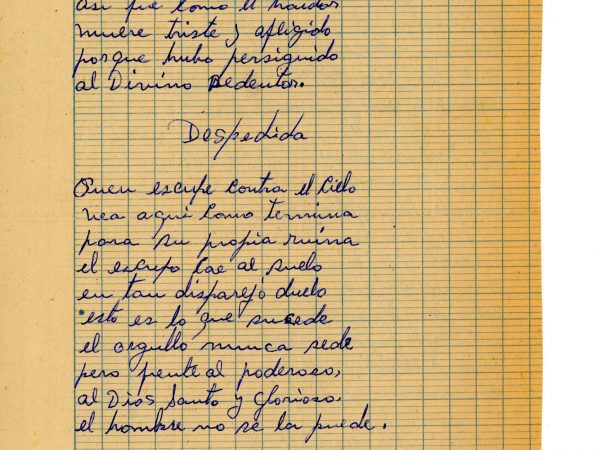 Así fue como el traidor
muere triste y afligido
porque hubo persiguido
al Divino Redentor.
Despedida
Quien escupe contra el Cielo
vea aquí como termina
para su propia ruina
el escupo cae al suelo
en tan disparejo duelo
esto es lo que sucede
el orgullo nunca sede
pero frente al poderoso,
al Dios Santo y Glorioso,
el hombre no se la puede.